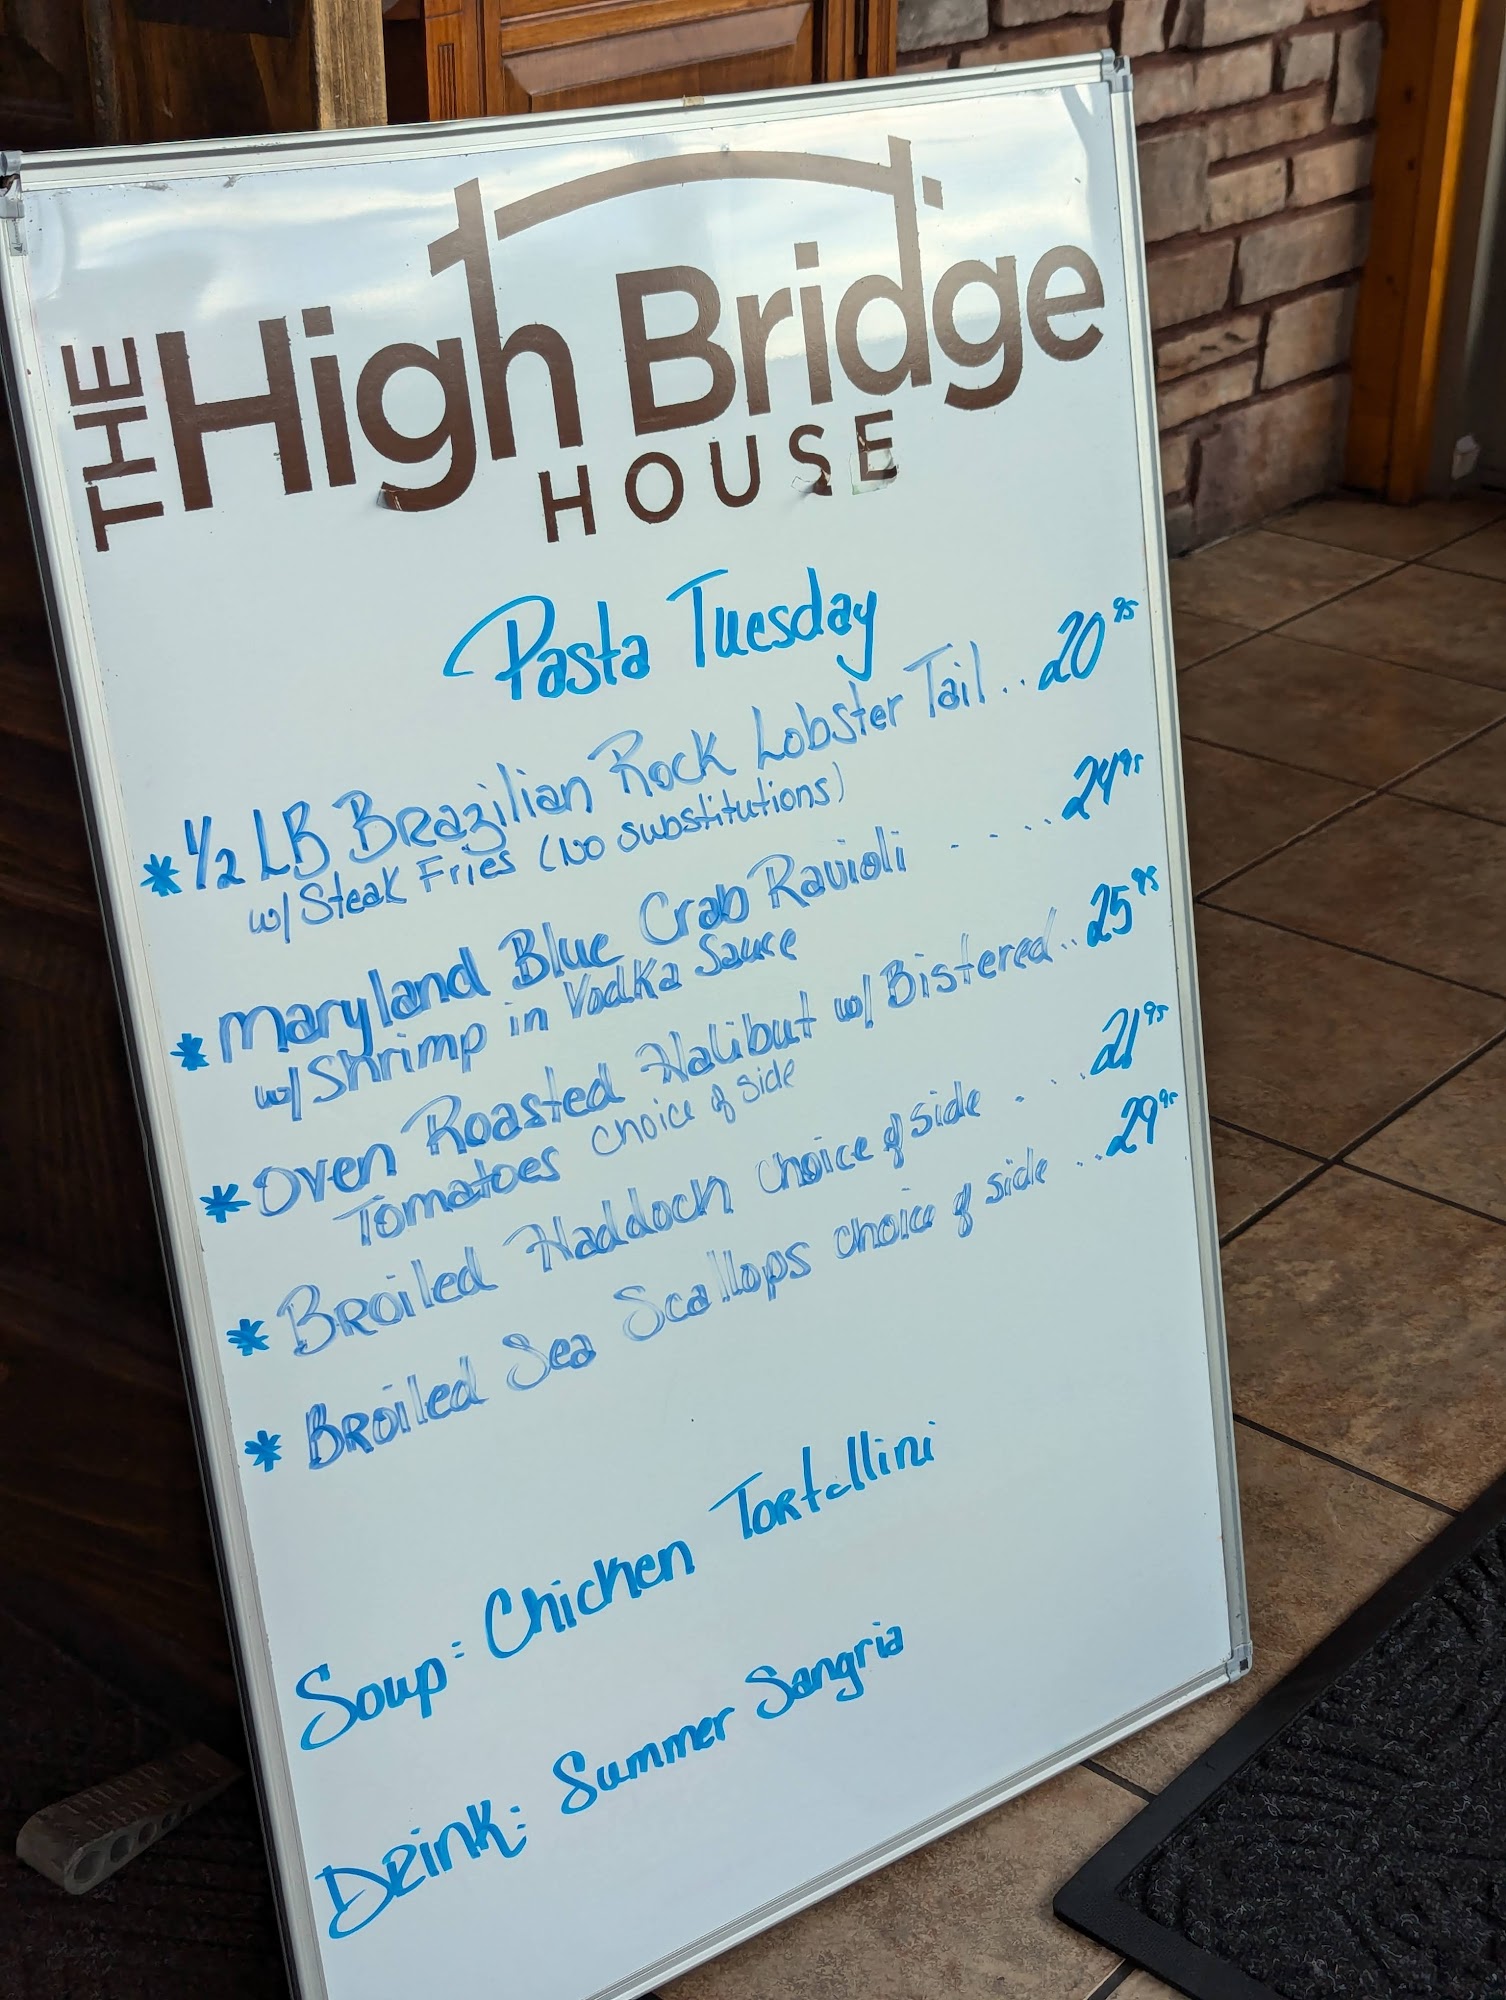 THE High Bridge
HOUSE
Pasta Tuesday
* 1/2 LB Brazilian Rock Lobster Tail .. 20 95
w/ Steak Fries (No substitutions)
* Maryland Blue Crab Ravioli ..... 24 95
w/ Shrimp in Vodka Sauce
* Oven Roasted Halibut w/ Bistered .. 25 95
Tomatoes choice of side
* Broiled Haddock choice of side ... 21 95
* Broiled Sea Scallops choice of side .. 29 95
Soup: Chicken Tortellini
Drink: Summer Sangria